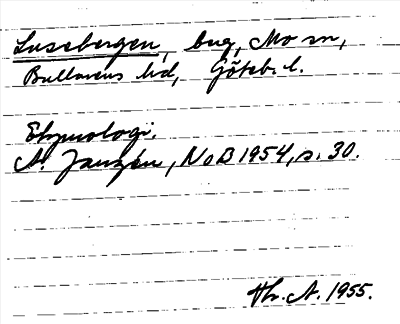 Lussebergen, bng, Mo sn,
Bullarens hd, Göteb. l.
Etymologi.
A. Janzén, NoB 1954, s. 30.
Th. A. 1955.